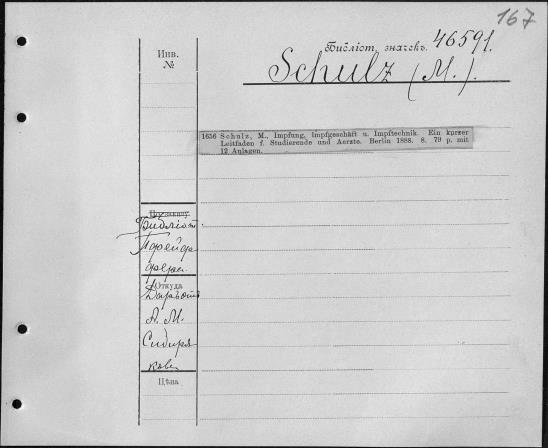 167
Библіот. значекъ. 46591.
Инв.
№
Schulz (M.).
1656 Schulz, M., Impfung, Impfgeschäft u. Impftechnik. Ein kurzer
Leitfaden f. Studierende und Aerzte. Berlin 1888. 8. 79 p. mit
12 Anlagen.
Библіот
Пфейф
фера.
Откуда
Даръ
А. М.
Сибиря
кова
Цѣна